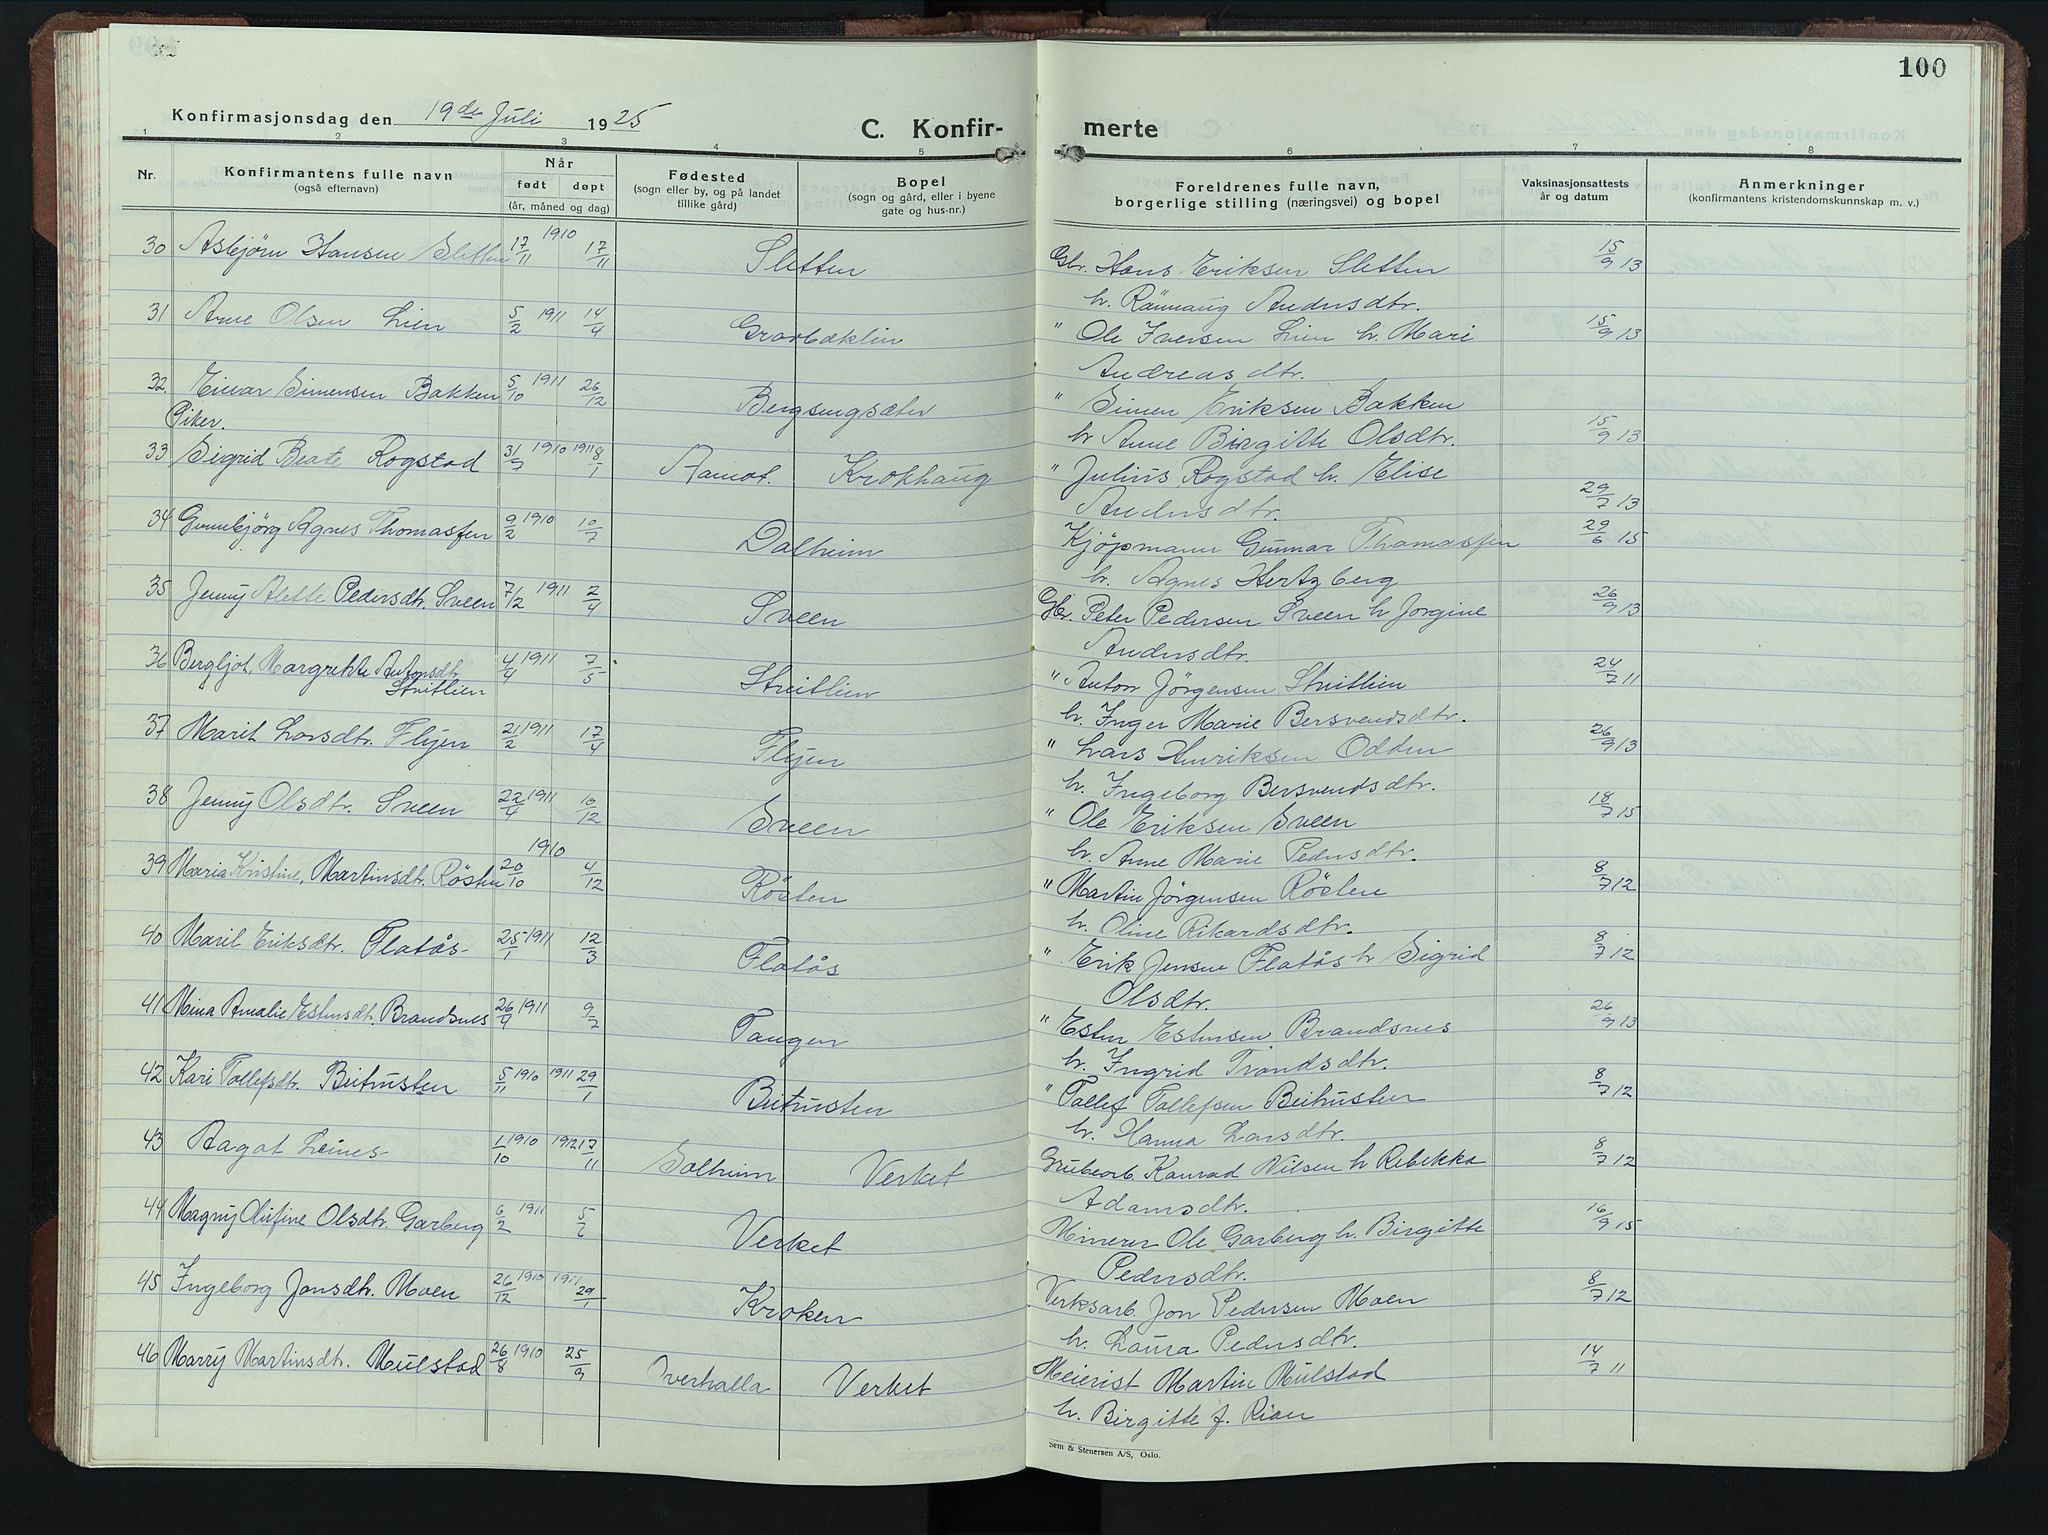 100
Konfirmasjonsdag den 19de Juli 1925
C. Konfir-
merte
1 2 3 4 5 6 7 8
Nr.
Konfirmantens fulle navn
(også efternavn)
Når
født døpt
(år, måned og dag)
Fødested
(sogn eller by, og på landet
tillike gård)
Bopel
(sogn og gård, eller i byene
gate og hus-nr.)
Foreldrenes fulle navn,
borgerlige stilling (næringsvei) og bopel
Vaksinasjonsattests
år og datum
Anmerkninger
(konfirmantens kristendomskunnskap m. v.)
30 Asbjørn Hansen Sletten 17/11 1910 17/11 Sletten Gbr. Hans Eriksen Sletten 15/9 13
h. Rannaug Andersdtr.
31 Arne Olsen Lien 5/2 1911 14/4 Gravbæklien " Ole Iversen Lien h. Mari 15/9 13
Andreasdtr.
32. Einar Simensen Bakken 5/10 1911 26/12 Bergsengsæter " Simen Eriksen Bakken
h Anne Birgitte Olsdtr. 15/9 13
Piker.
33 Sigrid Beate Rogstad 31/7 1910 1911 8/1 Aamot. Krokhaug " Julius Rogstad h. Elise
Andersdtr. 29/7 13
34 Gunnbjörg Agnes Thomassen 9/2 1910 10/7 Dalheim Kjøpmann Gunnar Thomassen 29/6 15
h. Agnes Hertzberg
35 Jenny Alette Pedersdtr. Sveen 7/12 1911 2/4 Sveen Gbr. Peter Pedersen Sveen h Jorgine 26/9 13
Andersdtr.
36 Bergljot Margrethe Antonsdtr.
Streitlien 4/4 1911 7/5 Streitlien " Anton Jörgensen Streitlien 24/7 11
h. Inger Marie Bersvendsdtr.
37 Marit Larsdtr. Flyen 21/2 1911 17/4 Flyen " Lars Henriksen Odden 26/9 13
h. Ingeborg Bersvendsdtr.
38 Jenny Olsdtr. Sveen 22/4 1911 10/12 Sveen " Ole Eriksen Sveen 18/7 15
h. Anne Marie Pedersdtr.
39 Maria Kristine, Martinsdtr. Rösten 20/10 1910 4/12 Rösten " Martin Jörgensen Rösten 8/7 12
h. Oline Rikardsdtr.
40 Marit Eriksdtr. Flatås 25/1 1911 12/3 Flatås " Erik Jensen Flatås h Sigrid 8/7 12
Olsdtr.
41 Mina Amalie Estensdtr. Brandsnes 26/4 1911 9/7 Tangen " Esten Estensen Brandsnes 26/9 13
h. Ingrid Trondsdtr.
42 Kari Tollefsdtr. Beitrusten 5/11 1910 1911 29/1 Beitrusten " Tollef Tollefsen Beitrusten 8/7 12
h. Hanna Larsdtr.
43 Aagot Leines 1/10 1910 1912 17/11 Solheim Verket Grubearb. Konrad Nilsen h Rebekka 8/7 12
Adamsdtr.
44 Magny Olufine Olsdtr. Garberg 6/2 1911 5/ Verket Minerer Ole Garberg h. Birgitte 16/9 15
Pedersdtr.
45 Ingeborg Jonsdtr. Moen 26/12 1910 1911 29/1 Kroken Verksarb. Jon Pedersen Moen 8/7 12
h. Laura Pedersdtr.
46 Marry Martinsdtr. Mulstad 26/8 1910 25/9 Verket Meierist Martin Mulstad 14/7 11
h. Birgitte f. Rian
Sem & Stenersen A/S, Oslo.